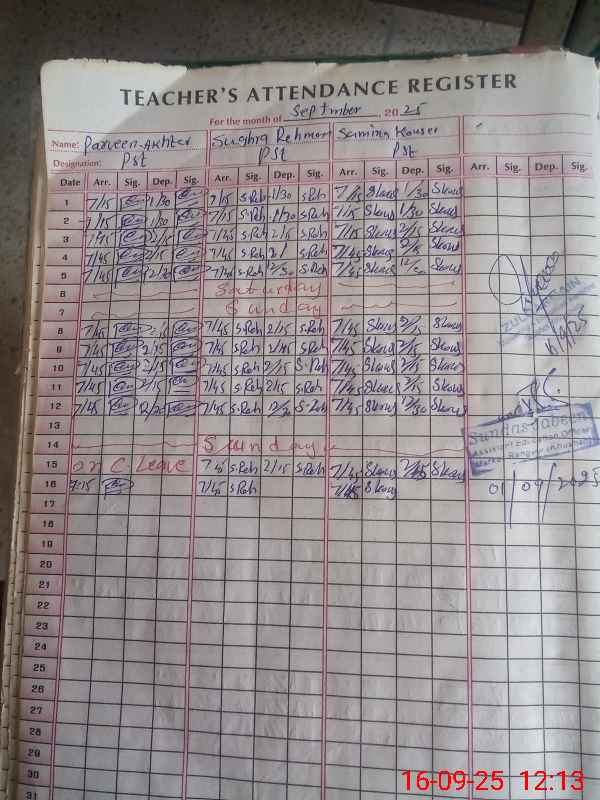 TEACHER'S ATTENDANCE REGISTER
For the month of September, 2025
Name: Parveen Akhter Sughra Rehman Samina Kouser
Designation: Pst PST Pst
Date Arr. Sig. Dep. Sig. Arr. Sig. Dep. Sig. Arr. Sig. Dep. Sig. Arr. Sig. Dep. Sig.
1 7/15 1/30 7/15 S.Reh 1/30 S.Reh 7/15 Skous 1/30 Skous
2 7/15 1/30 7/15 S.Reh 1/30 S.Reh 7/15 Skous 1/30 Skous
3 7/45 2/15 7/45 S.Reh 2/15 S.Reh 7/15 Skous 2/15 Skous
4 7/45 2/15 7/45 S.Reh 7/45 Skous 2/15 Skous
5 7/45 7/45 S.Reh 12/30 S.Reh 7/45 Skous 12/30 Skous
6 Saturday
7 Sunday
8 7/45 7/45 S.Reh 2/15 S.Reh 7/45 Skous 2/15 Skous
9 7/45 2/15 7/45 S.Reh 2/15 S.Reh 7/45 Skous 2/15 Skous
10 7/45 2/15 7/45 S.Reh 2/15 S.Reh 7/45 Skous 2/15 Skous
11 7/45 2/15 7/45 S.Reh 2/15 S.Reh 7/45 Skous 2/15 Skous
12 7/45 12/30 7/45 S.Reh 12/30 S.Reh 7/45 Skous 12/30 Skous
13
14 Sunday
15 on C. Leave 7/45 S.Reh 2/15 S.Reh 7/45 Skous 2/15 Skous
16 7:15 7/45 S.Reh 7/45 Skous
17
18
19
20
21
22
23
24
25
26
27
28
29
30
31
Sundas Jabeen
Assistant Education Officer
01/09/2025
16-09-25 12:13